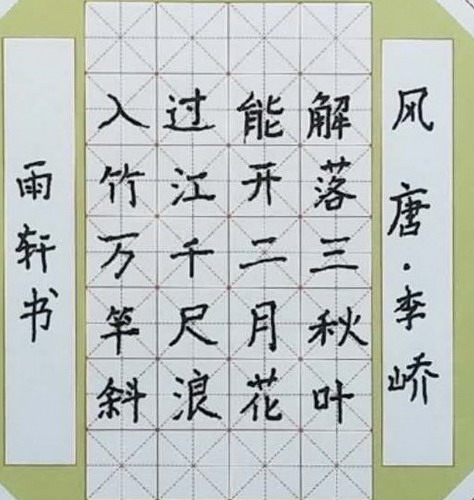 风 唐·李峤
解落三秋叶
能开二月花
过江千尺浪
入竹万竿斜
雨轩书